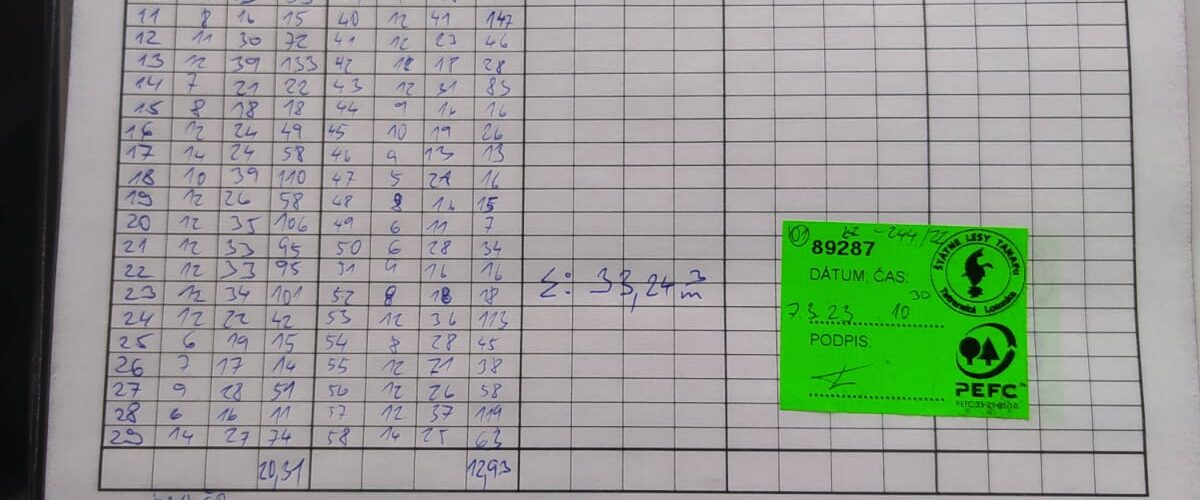 11 8 16 15 40 12 41 147
12 11 30 72 41 12 23 46
13 12 39 133 42 12 18 28
14 7 21 22 43 12 31 83
15 8 18 18 44 9 16 16
16 12 24 49 45 10 19 26
17 14 24 58 46 9 13 13
18 10 39 110 47 5 21 16
19 12 26 58 48 8 16 15
20 12 35 106 49 6 11 7
21 12 33 95 50 6 28 34
22 12 33 95 51 9 16 16
23 12 34 101 52 8 18 18
24 12 22 42 53 12 36 113
25 6 19 15 54 8 28 45
26 7 17 14 55 12 21 38
27 9 28 51 56 12 26 58
28 6 16 11 57 12 37 119
29 14 27 74 58 14 25 63
20,31 12,93
Σ: 33,24 m3
01
89287
DÁTUM; ČAS:
7.3.23 10 30
PODPIS:
ŠTÁTNE LESY TANAPU
Tatranská Lomnica
PEFC